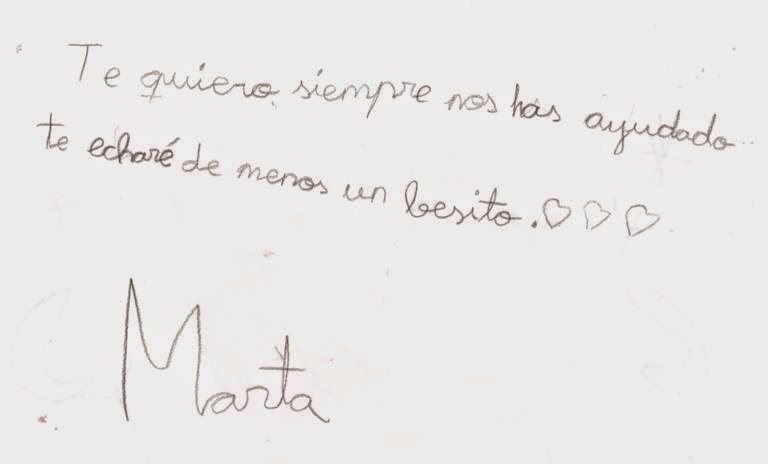 Te quiero siempre nos has ayudado
te echaré de menos un besito. ♡♡♡
Marta